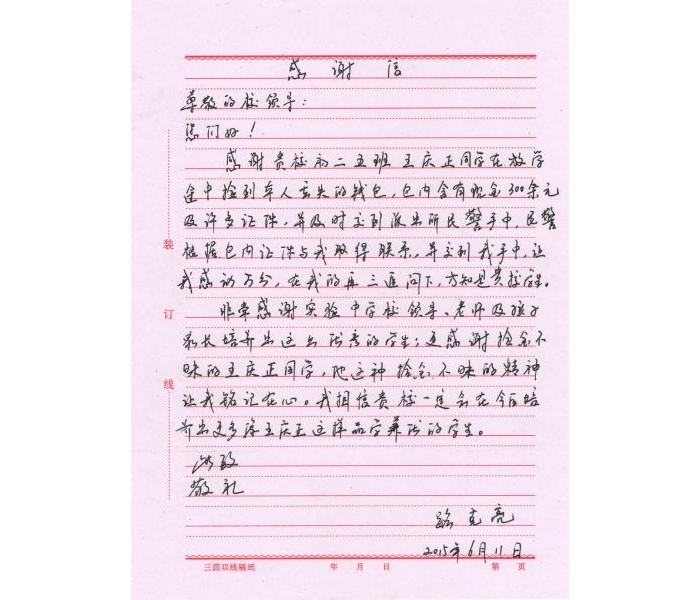 感谢信
尊敬的校领导：
您们好！
感谢贵校初二五班王庆正同学在放学
途中捡到本人丢失的钱包，包内含有现金300余元
及许多证件，并及时交到派出所民警手中，民警
根据包内证件与我取得联系，并交到我手中，让
我感谢万分，在我的再三追问下，方知是贵校学生。
非常感谢实验中学校领导、老师及孩子
家长培养出这么优秀的学生；还感谢拾金不
昧的王庆正同学，他这种拾金不昧的精神
让我铭记在心。我相信贵校一定会在今后培
养出更多像王庆正这样品学兼优的学生。
此致
敬礼
路克亮
2015年6月11日
装
订
线
三圆双线稿纸 年 月 日 第 页